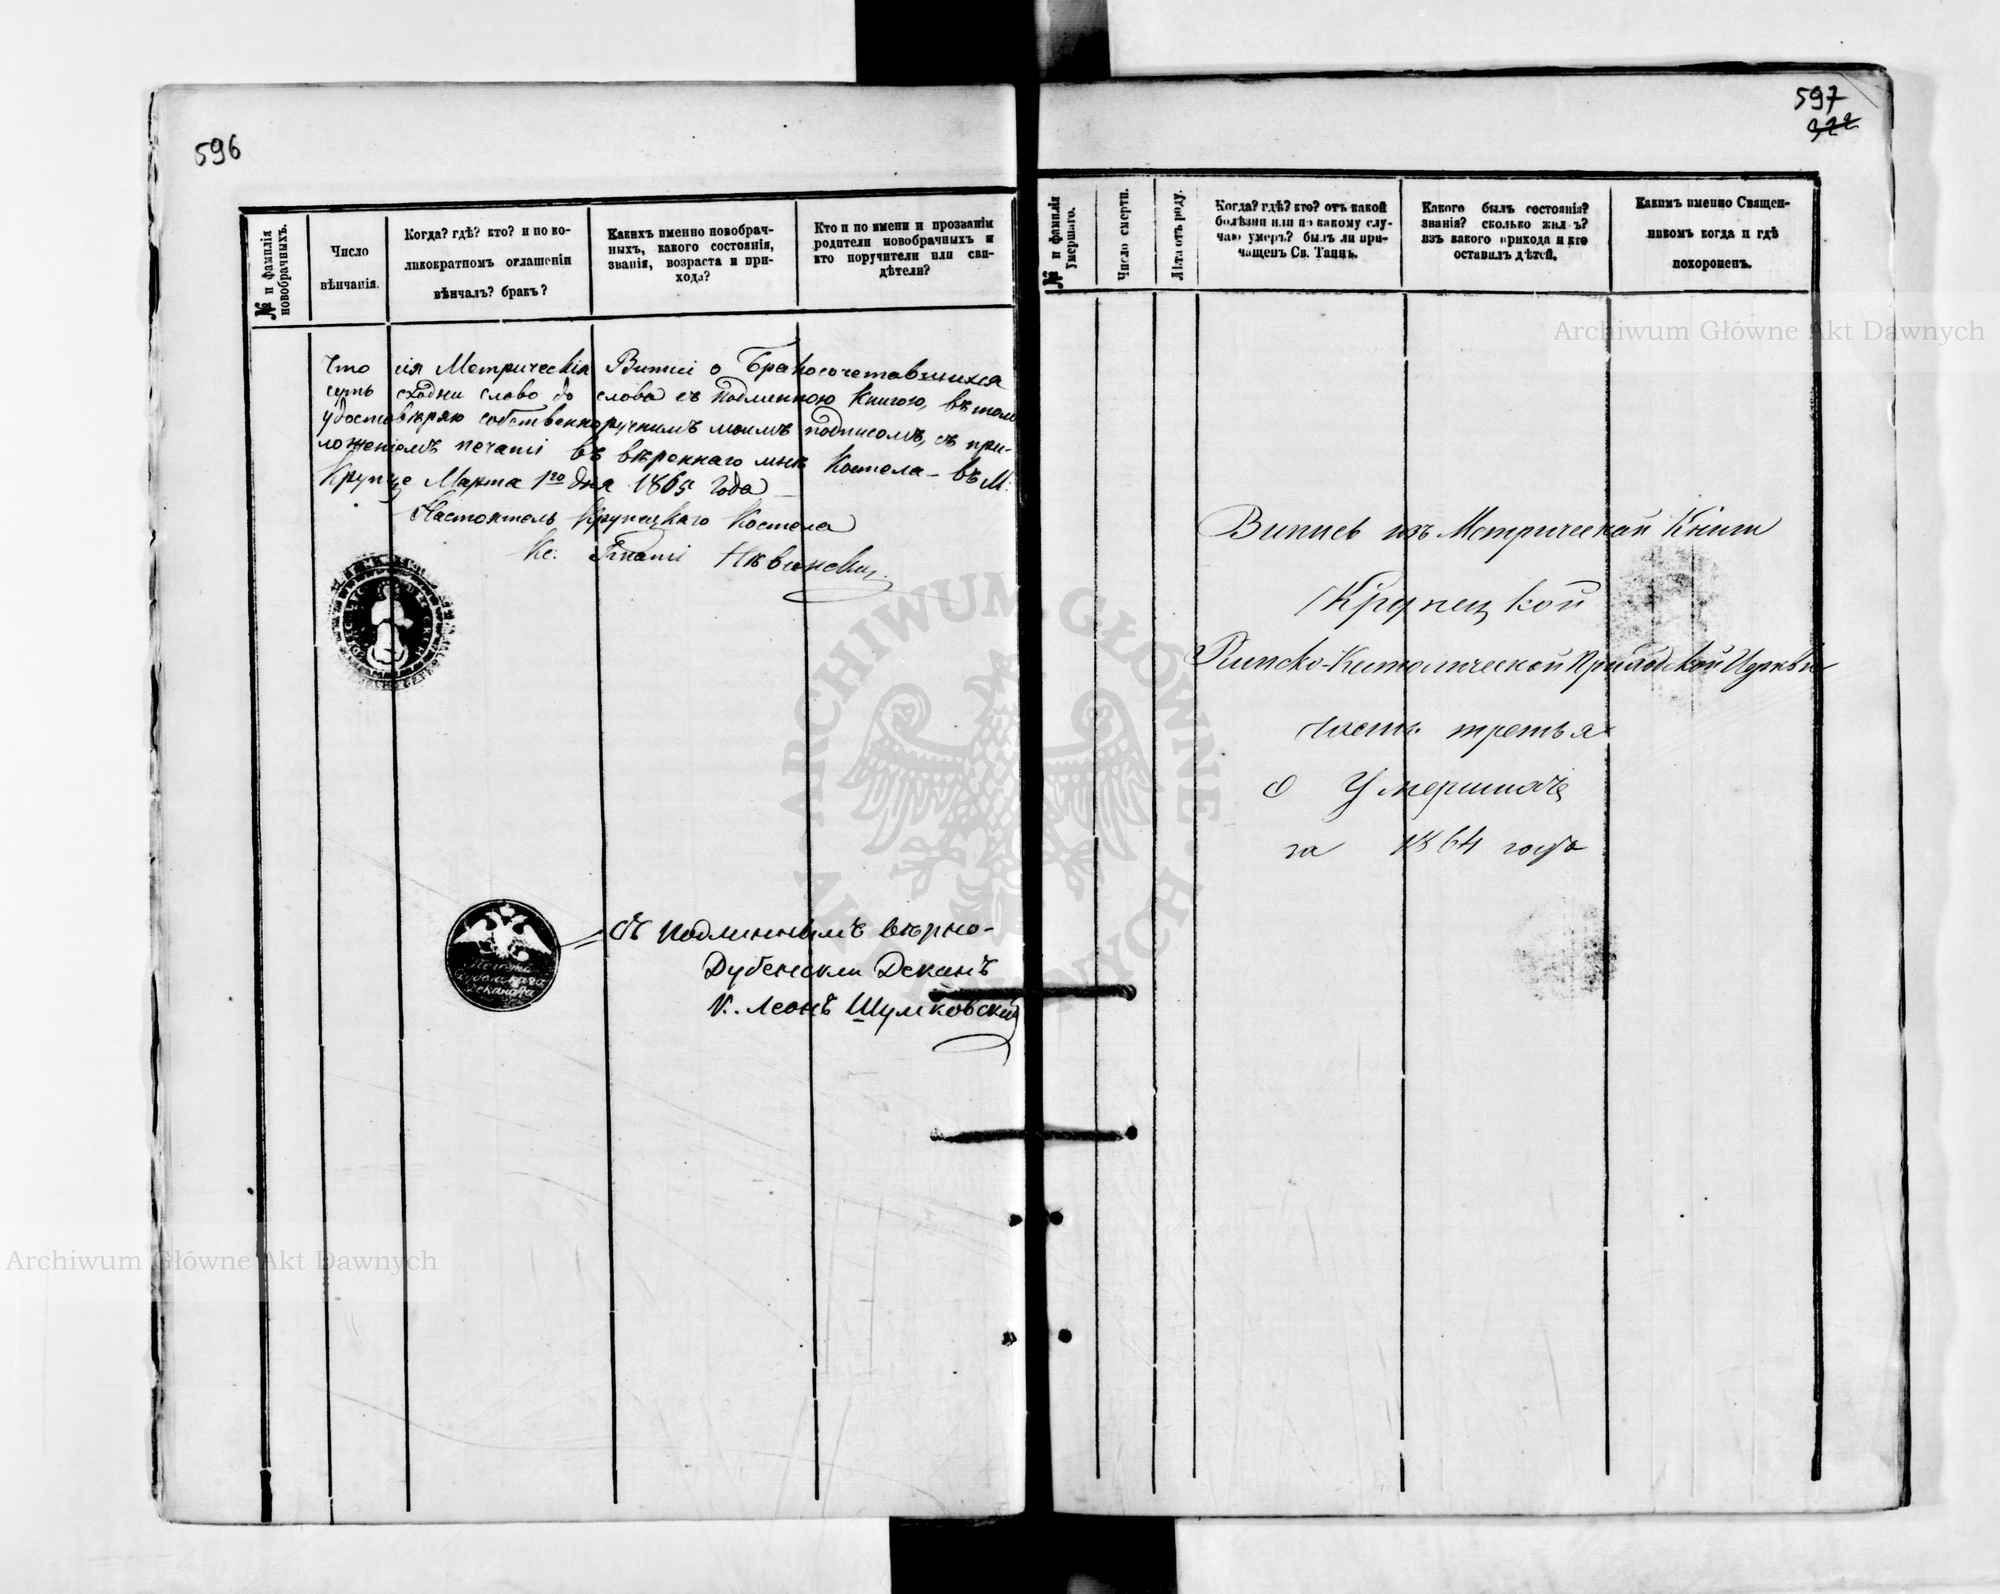 596
№ и фамилія новобрачныхъ.
Число вѣнчанія.
Когда? гдѣ? кто? и по ко-
ликократномъ оглашеніи
вѣнчалъ? бракъ?
Какихъ именно новобрач-
ныхъ, какого состоянія,
званія, возраста и при-
хода?
Кто и по имени и прозванію
родители новобрачныхъ и
кто поручители или сви-
дѣтели?
Что сія Метрическія Виписі о Бракосочетавшихся
суть сходни слово до слова съ подлинною Книгою, въ том
удостовѣряю собственноручнимъ моимъ подписомъ, съ при-
ложеніемъ печаті въ ввѣреннаго мнѣ Костела – въ М.
Крупце Марта 1го дня 1865 Года
Настоятель Крупецкаго Костела
Кс. Игнаті
Съ подлиннымъ вѣрно-
Дубенскій Деканъ
К. Леонъ Шумковскій
Печать
Дубенскаго
Декана
597
322
№ и фамилія умершаго.
Число смерти.
Лѣта отъ роду.
Когда? гдѣ? кто? отъ какой
болѣзни или по какому слу-
чаю умеръ? былъ ли при-
чащенъ Св. Таинъ.
Какого былъ состоянія?
званія? сколько жилъ?
изъ какого прихода и кто
оставилъ дѣтей.
Какимъ именно Священ-
никомъ когда и гдѣ
похороненъ.
Виписъ изъ Метрической Книги
Крупецкой
Римско-Католической Приходской Церкви
часть третья
о Умершихъ
за 1864 годъ
Archiwum Główne Akt Dawnych
Archiwum Główne Akt Dawnych
ARCHIWUM GŁÓWNE AKT DAWNYCH